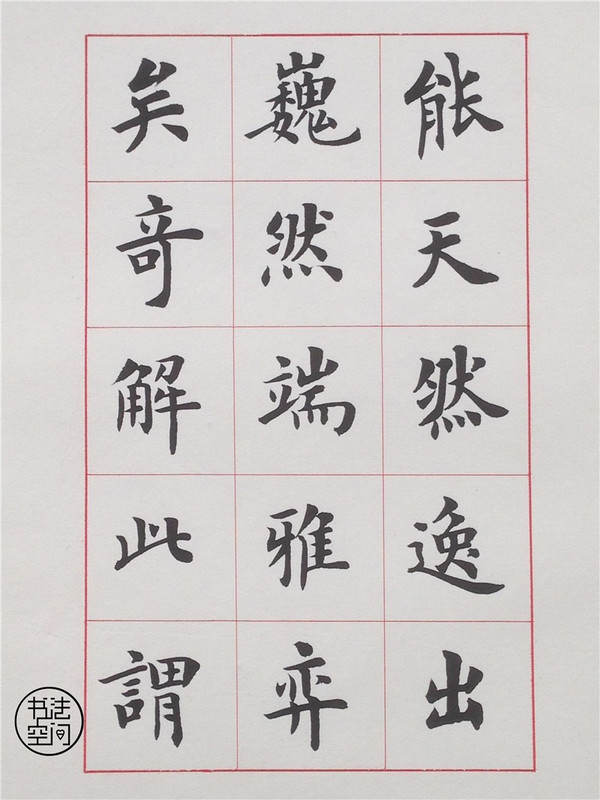 能天然逸出
巍然端雅弈
矣奇解此謂
书法
空间